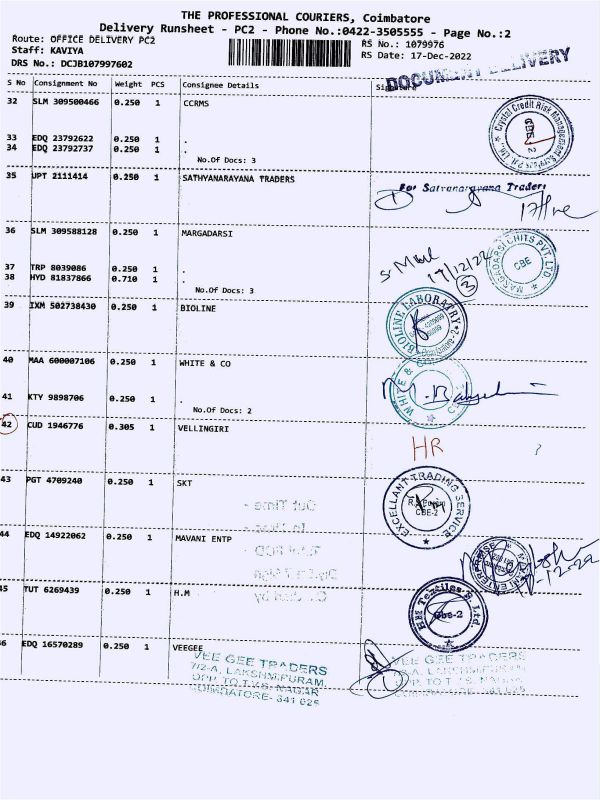 THE PROFESSIONAL COURIERS, Coimbatore
Delivery Runsheet - PC2 - Phone No.:0422-3505555 - Page No.:2
Route: OFFICE DELIVERY PC2
Staff: KAVIYA
DRS No.: DCJB107997602
RS No.: 1079976
RS Date: 17-Dec-2022
DOCUMENT DELIVERY
S No Consignment No Weight PCS Consignee Details
32 SLM 309500466 0.250 1 CCRMS
33 EDQ 23792622 0.250 1 .
34 EDQ 23792737 0.250 1 .
No.Of Docs: 3
Crystal Credit Risk Management
CBE 2
35 UPT 2111414 0.250 1 SATHYANARAYANA TRADERS
For Satyanarayana Traders
36 SLM 309588128 0.250 1 MARGADARSI
37 TRP 8039086 0.250 1 .
38 HYD 81837866 0.710 1 .
No.Of Docs: 3
17/12/22
3
MARGADARSI CHITS PVT. LTD.
CBE
39 IXM 502738430 0.250 1 BIOLINE
BIOLINE LABORATORY
40 MAA 600007106 0.250 1 WHITE & CO
41 KTY 9898706 0.250 1 .
No.Of Docs: 2
WHITE &
42 CUD 1946776 0.305 1 VELLINGIRI
HR
43 PGT 4709240 0.250 1 SKT
EXCELLANT TRADING SERVICE
CBE-2
Out Time -
In Time -
by
44 EDQ 14922062 0.250 1 MAVANI ENTP
45 TUT 6269439 0.250 1 H.M
Textiles P. Ltd.
Cbe-2
46 EDQ 16570289 0.250 1 VEEGEE
VEE GEE TRADERS
7/2-A, LAKSHMIPURAM,
OPP. TO T.V.S. NAGAR
COIMBATORE- 641 025
VEE GEE TRADERS
LAKSHMIPURAM,
OPP. TO T.V.S. NAGAR
COIMBATORE- 641 025